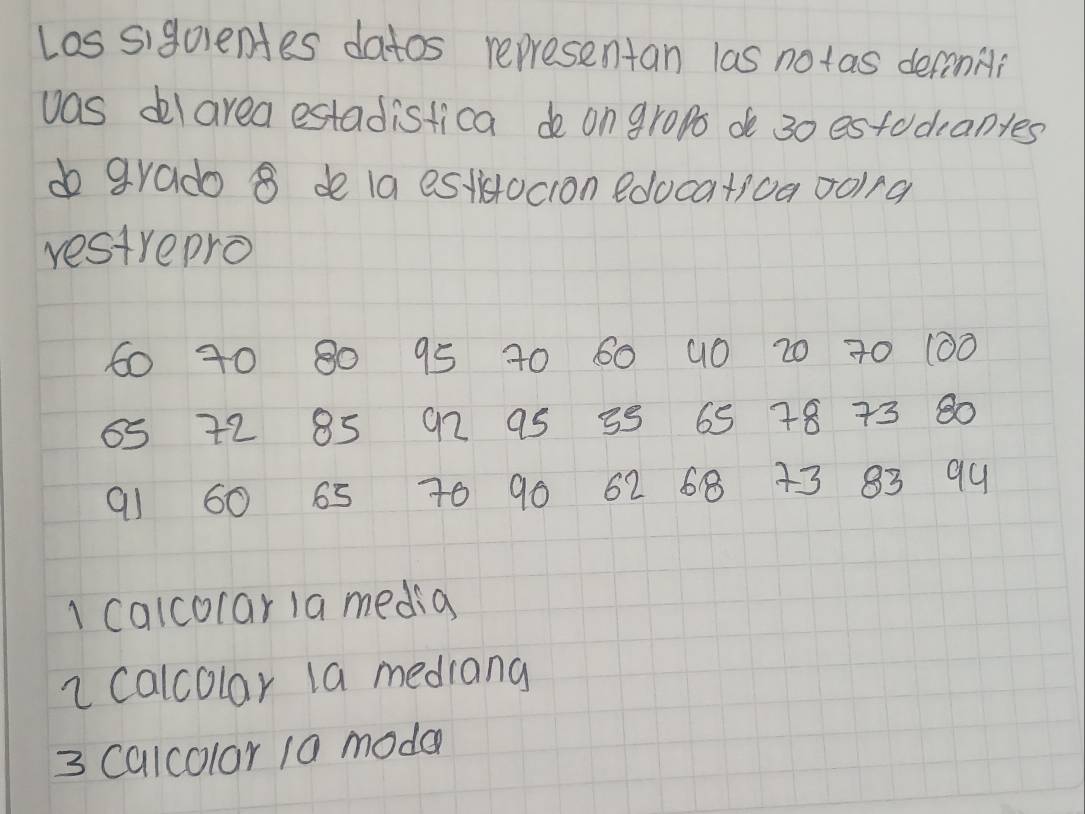 Los siguientes datos representan las notas definiti
vas del area estadistica de un grupo de 30 estudiantes
de grado 8 de la estistucion educativa
restrepro
60 70 80 95 70 60 40 20 70 100
65 72 85 92 95 35 65 78 73 80
91 60 65 70 90 62 68 73 83 94
1 calcular la media
2 calcular la mediana
3 calcular la moda